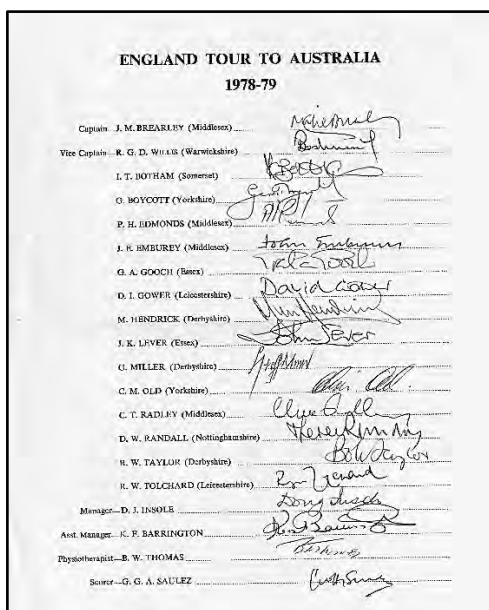 ENGLAND TOUR TO AUSTRALIA
1978-79
Captain J. M. BREARLEY (Middlesex)
Vice Captain R. G. D. WILLIS (Warwickshire)
I. T. BOTHAM (Somerset)
G. BOYCOTT (Yorkshire)
P. H. EDMONDS (Middlesex)
J. E. EMBUREY (Middlesex) John Emburey
G. A. GOOCH (Essex)
D. I. GOWER (Leicestershire) David Gower
M. HENDRICK (Derbyshire) Mike Hendrick
J. K. LEVER (Essex) John Lever
G. MILLER (Derbyshire)
C. M. OLD (Yorkshire) Chris Old
C. T. RADLEY (Middlesex) Clive Radley
D. W. RANDALL (Nottinghamshire)
R. W. TAYLOR (Derbyshire) Bob Taylor
R. W. TOLCHARD (Leicestershire)
Manager—D. J. INSOLE Doug Insole
Asst. Manager K. F. BARRINGTON
Physiotherapist—B. W. THOMAS
Scorer—G. G. A. SAULEZ